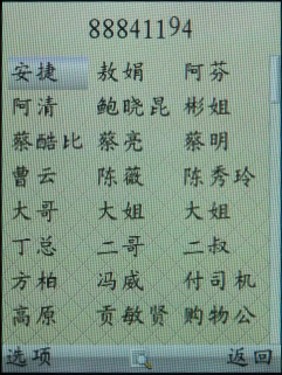 88841194
安捷 敖娟 阿芬
阿清 鲍晓昆 彬姐
蔡酷比 蔡亮 蔡明
曹云 陈薇 陈秀玲
大哥 大姐 大姐
丁总 二哥 二叔
方柏 冯威 付司机
高原 贡敏贤 购物公
选项 返回